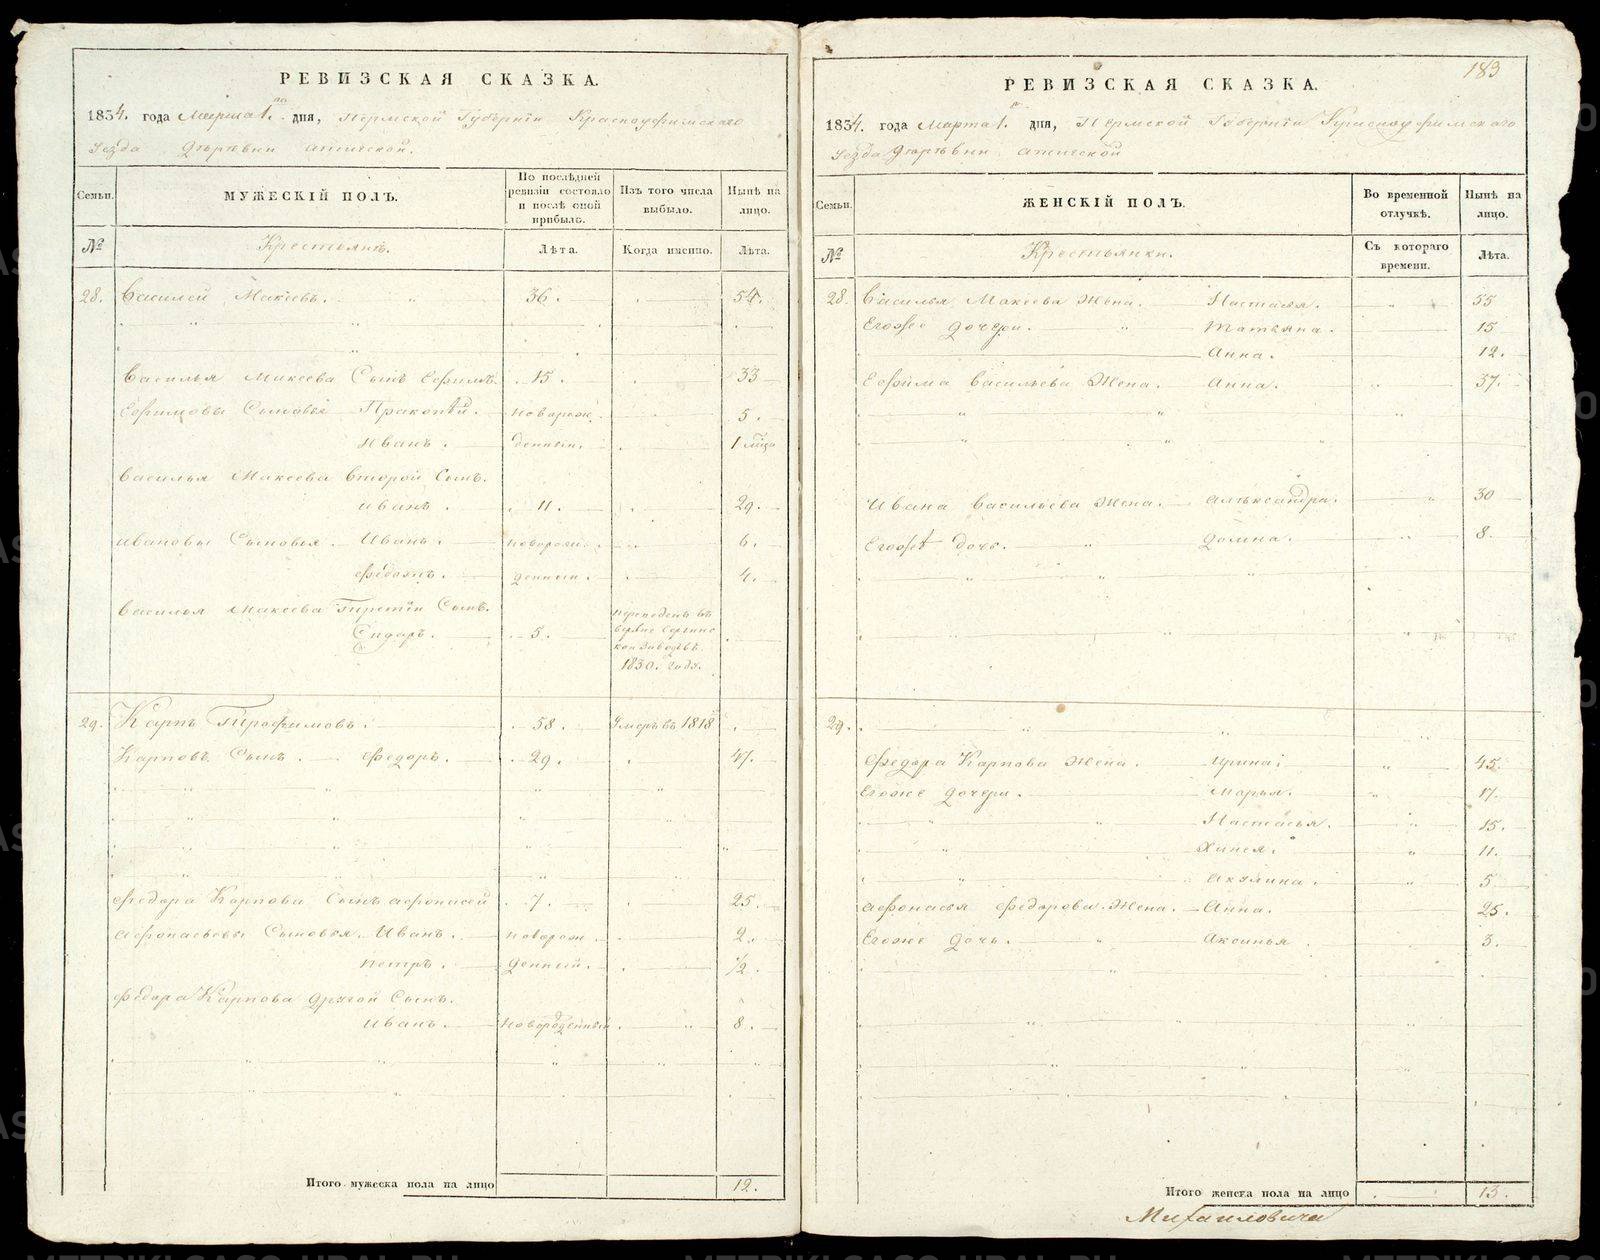 РЕВИЗСКАЯ СКАЗКА.
1834. года Марта 1. го дня, Пермской Губернiи Красноуфимскаго
Уезда Дѣрѣвни
Семьи. МУЖЕСКІЙ ПОЛЪ. По послѣдней ревизіи состояло и послѣ оной прибыло. Изъ того числа выбыло. Нынѣ на лицо.
№ Крестьянѣ. Лѣта. Когда именно. Лѣта.
28. Василей Макѣевъ. 36. 54.
Василья Макеева Сынъ Ефимъ. 15. 33
Ефимовы Сыновья Пракопѣй. новорож. 5.
Иванъ. денныи. 1
Василья Макеева второй Сынъ.
Иванъ. 11. 29.
Ивановы Сыновья. Иванъ. новорож. 6.
денныи. 4.
Василья Макеева Третiи Сынъ.
5. 1830. года.
29. Карпъ Трофимовъ. 58. Умеръ въ 1818
Карповъ Сынъ. Федоръ. 29. 47.
Федора Карпова Сынъ Афонасей 7. 25.
Афонасьевы Сыновья. Иванъ. новорож. 2.
Петръ. денный. 1/2.
Федора Карпова другой Сынъ.
Иванъ. Новорожденный 8.
Итого мужеска пола на лицо 12.
183
РЕВИЗСКАЯ СКАЗКА.
1834. года Марта 1. дня, Пермской Губернiи Красноуфимскаго
Уезда Дѣрѣвни
Семьи. ЖЕНСКІЙ ПОЛЪ. Во временной отлучкѣ. Нынѣ на лицо.
№ Крестьянки. Съ котораго времени. Лѣта.
28. Василья Макеева Жена. Настасья. 55
Егоже дочери. Татьяна. 15
Анна. 12.
Ефима Васильева Жена. Анна. 37.
Ивана Васильева Жена. Алѣксандра. 30
Егоже дочь. Домна. 8.
29.
Федора Карпова Жена. Ирина. 45.
Егоже дочери. Марья. 17.
Настасья. 15.
11.
Акулина. 5
Афонасья Федорова Жена. Анна. 25.
Егоже дочь. Аксинья 3.
Итого женска пола на лицо 13.
Михаиловича